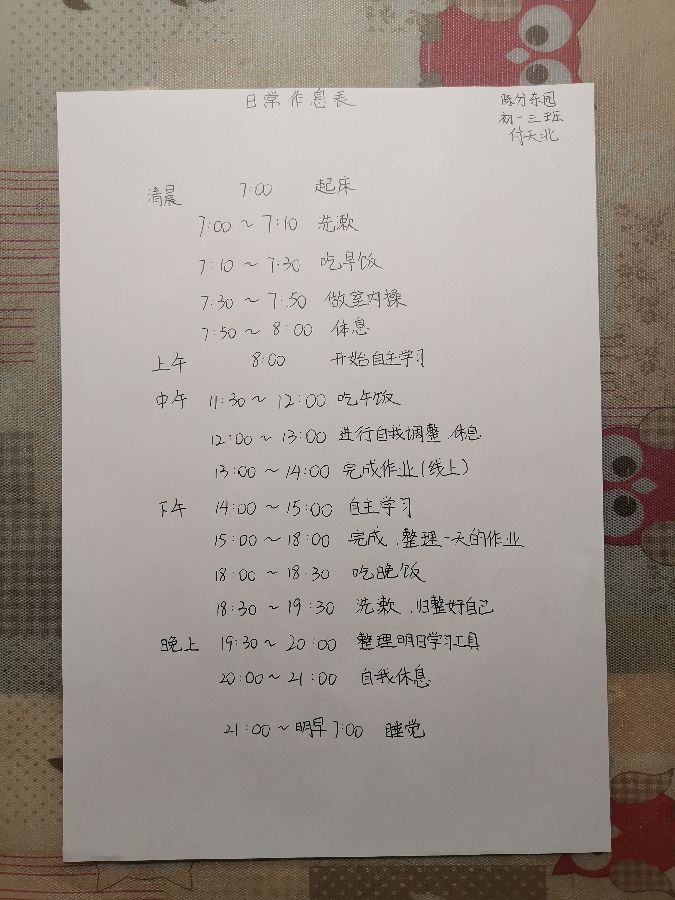 日常作息表
陈分东园
初一三班
侍天北
清晨 7:00 起床
7:00～7:10 洗漱
7:10～7:30 吃早饭
7:30～7:50 做室内操
7:50～8:00 休息
上午 8:00 开始自主学习
中午 11:30～12:00 吃午饭
12:00～13:00 进行自我调整、休息
13:00～14:00 完成作业(线上)
下午 14:00～15:00 自主学习
15:00～18:00 完成、整理一天的作业
18:00～18:30 吃晚饭
18:30～19:30 洗漱、归整好自己
晚上 19:30～20:00 整理明日学习工具
20:00～21:00 自我休息
21:00～明早7:00 睡觉